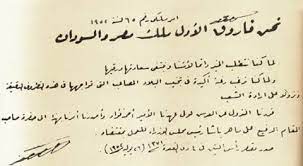 أمر ملكي رقم ٦٥ لسنة ١٩٥٢
نحن فاروق الأول ملك مصر والسودان
لما كنا نتطلب الخير دائما لأمتنا ونبتغي سعادتها ورقيها
ولما كنا نرغب رغبة أكيدة في تجنيب البلاد المصاعب التي تواجهها في هذه الظروف الدقيقة
ونزولا على إرادة الشعب
قررنا النزول عن العرش لولي عهدنا الأمير أحمد فؤاد وأصدرنا أمرنا بهذا إلى حضرة صاحب
المقام الرفيع علي ماهر باشا رئيس مجلس الوزراء للعمل بمقتضاه
صدر بقصر رأس التين في ٤ ذي القعدة ١٣٧١ (٢٦ يوليه ١٩٥٢)